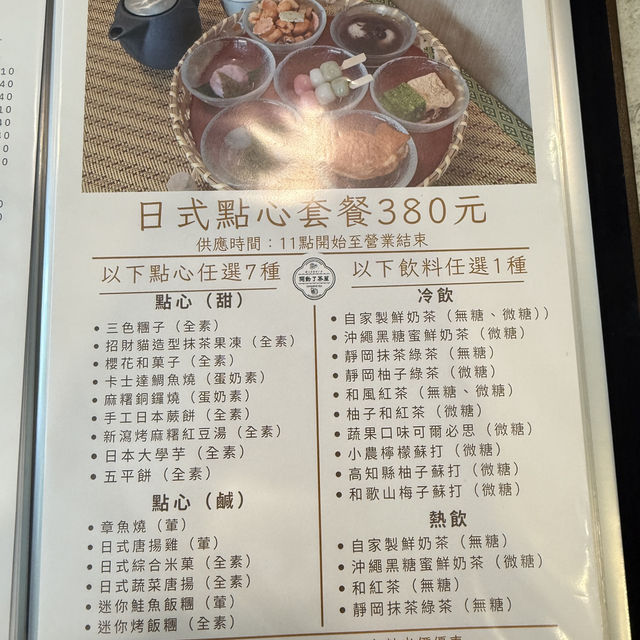 日式點心套餐380元
供應時間：11點開始至營業結束
以下點心任選7種
點心（甜）
• 三色糰子（全素）
• 招財貓造型抹茶果凍（全素）
• 櫻花和菓子（全素）
• 卡士達鯛魚燒（蛋奶素）
• 麻糬銅鑼燒（蛋奶素）
• 手工日本蕨餅（全素）
• 新瀉烤麻糬紅豆湯（全素）
• 日本大學芋（全素）
• 五平餅（全素）
點心（鹹）
• 章魚燒（葷）
• 日式唐揚雞（葷）
• 日式綜合米菓（全素）
• 日式蔬菜唐揚（全素）
• 迷你鮭魚飯糰（葷）
• 迷你烤飯糰（全素）
以下飲料任選1種
冷飲
• 自家製鮮奶茶（無糖、微糖））
• 沖繩黑糖蜜鮮奶茶（微糖）
• 靜岡抹茶綠茶（無糖）
• 靜岡柚子綠茶（微糖）
• 和風紅茶（無糖、微糖）
• 柚子和紅茶（微糖）
• 蔬果口味可爾必思（微糖）
• 小農檸檬蘇打（微糖）
• 高知縣柚子蘇打（微糖）
• 和歌山梅子蘇打（微糖）
熱飲
• 自家製鮮奶茶（無糖）
• 沖繩黑糖蜜鮮奶茶（微糖）
• 和紅茶（無糖）
• 靜岡抹茶綠茶（無糖）